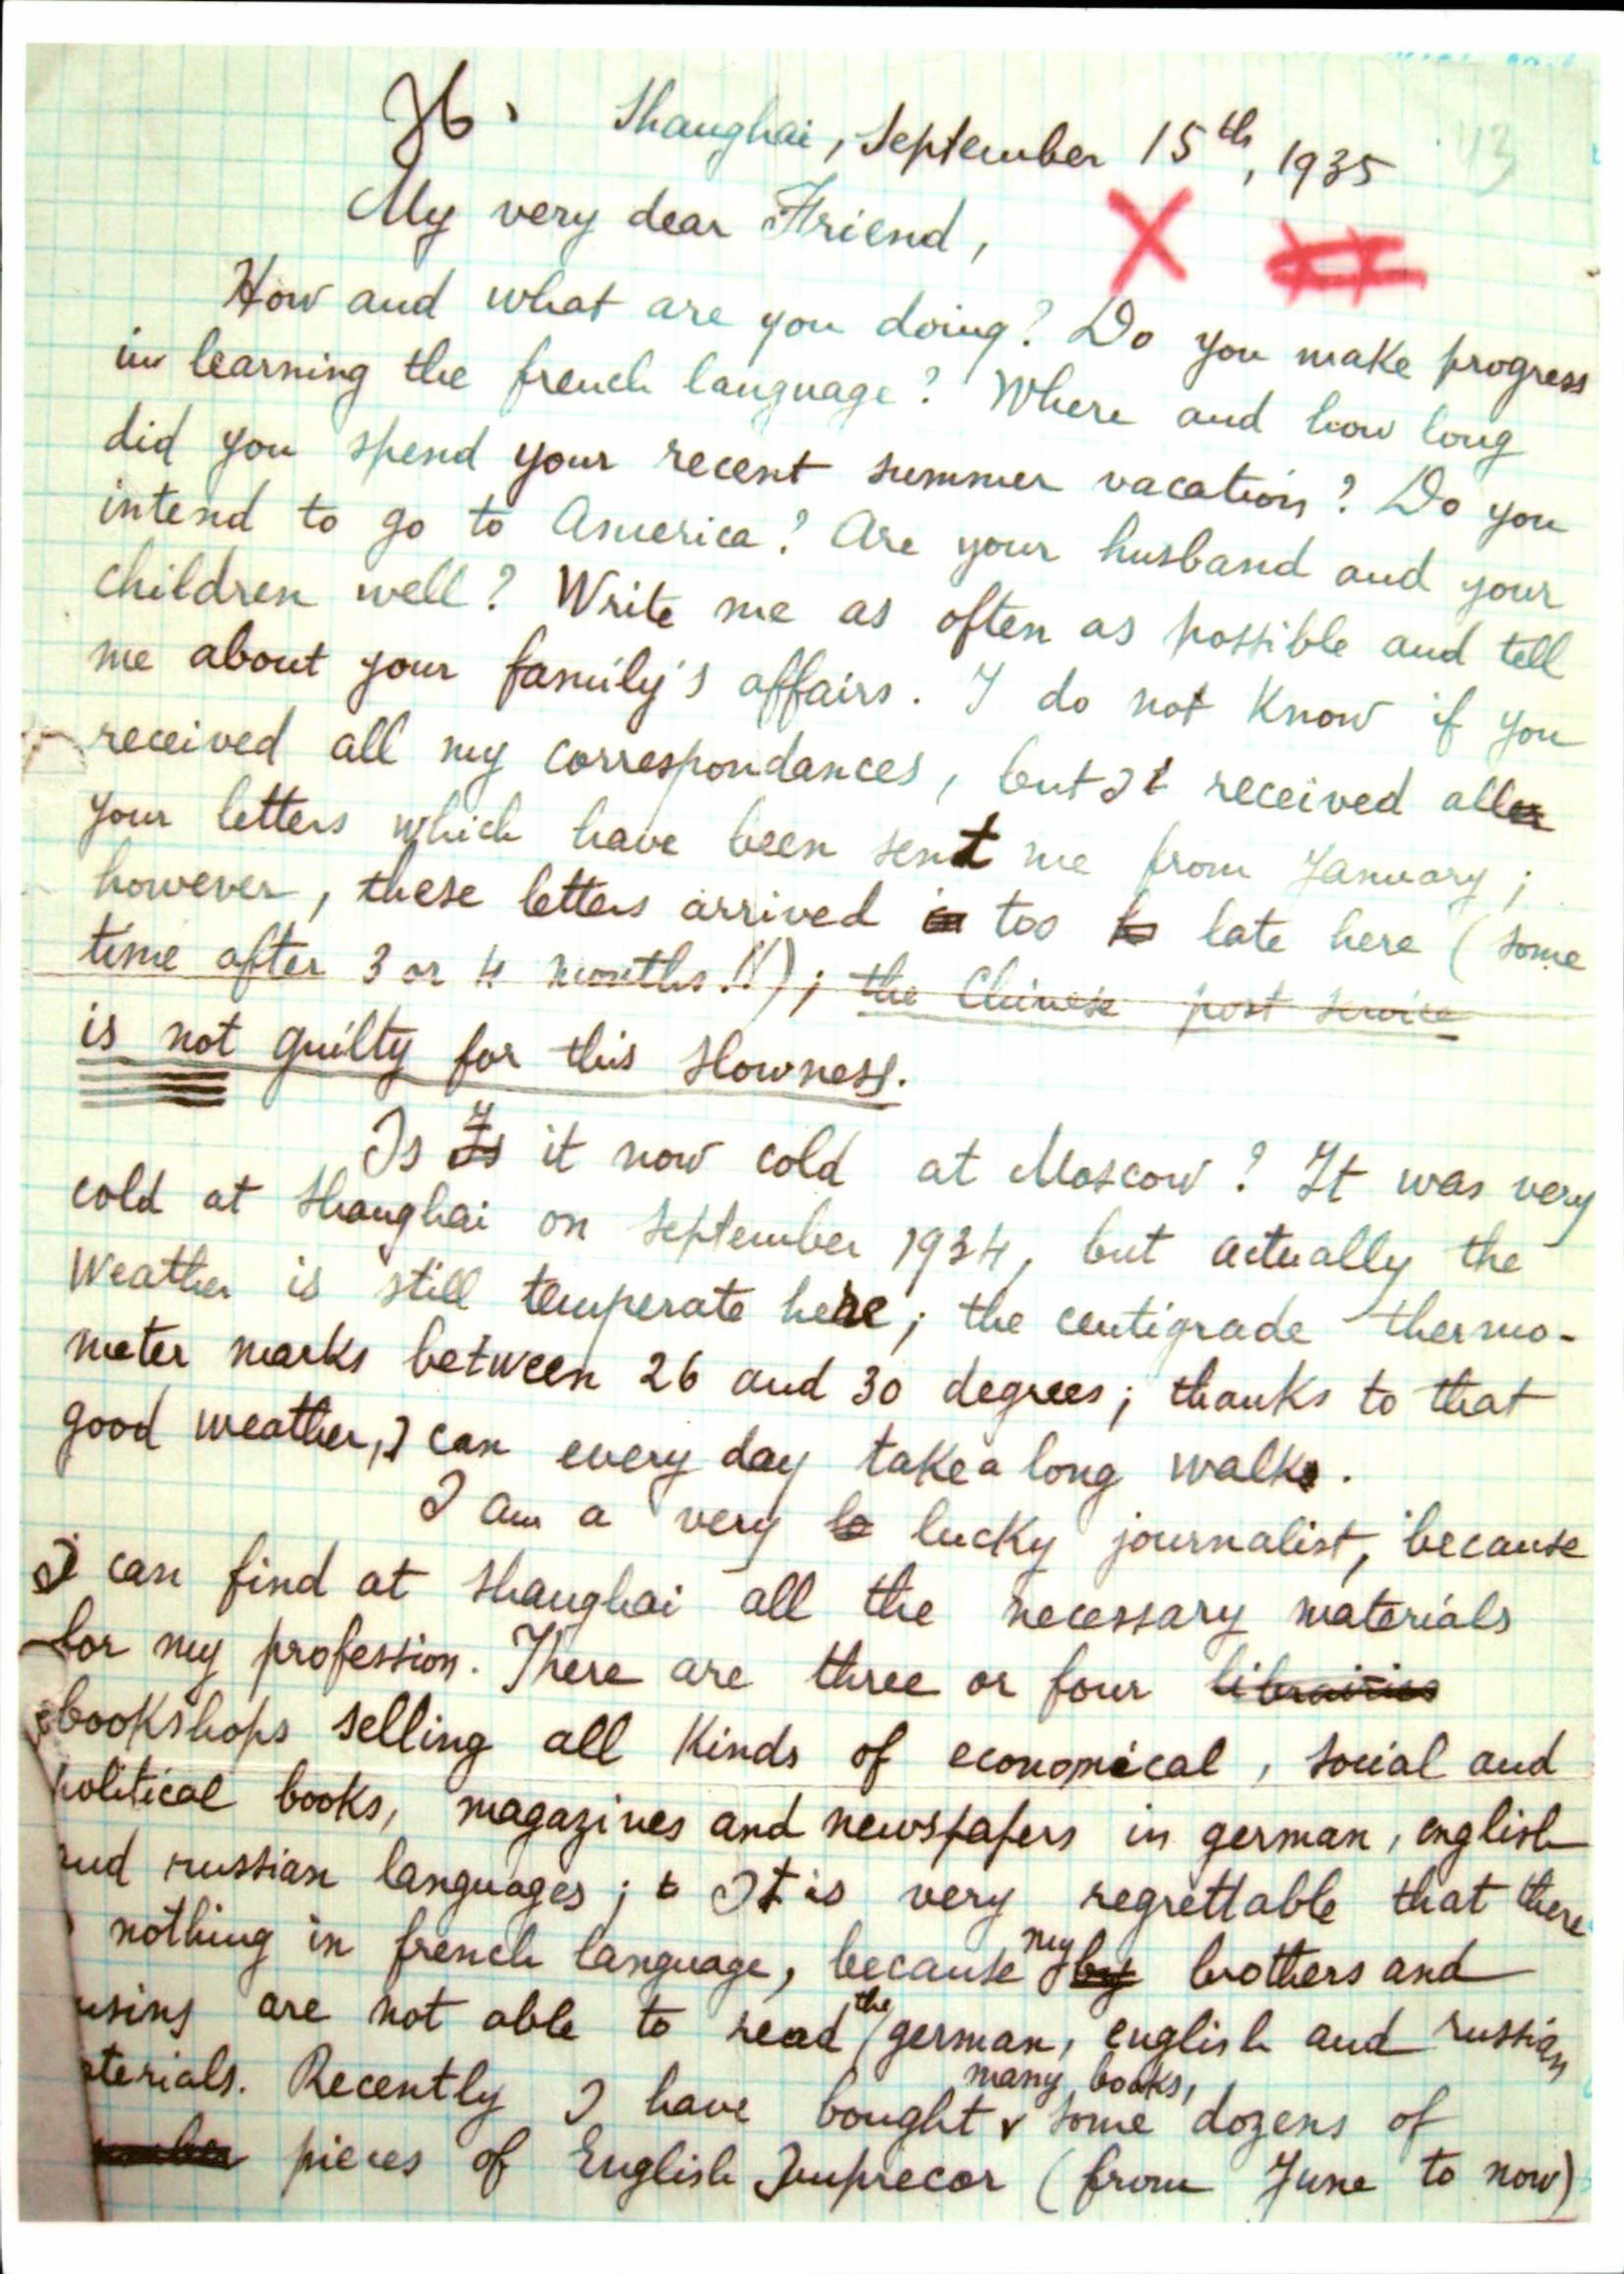 Shanghai, September 15th, 1935
My very dear Friend,
How and what are you doing? Do you make progress
in learning the french language? Where and how long
did you spend your recent summer vacation? Do you
intend to go to America? Are your husband and your
children well? Write me as often as possible and tell
me about your family's affairs. I do not know if you
received all my correspondances, but I received all
your letters which have been sent me from January;
however, these letters arrived too late here (some
time after 3 or 4 months!!); the Chinese post service
is not guilty for this slowness.
Is it now cold at Moscow? It was very
cold at Shanghai on September 1934, but actually the
weather is still temperate here; the centigrade thermo-
meter marks between 26 and 30 degrees; thanks to that
good weather, I can every day take a long walk.
I am a very lucky journalist, because
I can find at Shanghai all the necessary materials
for my profession. There are three or four librairies
bookshops selling all kinds of economical, social and
political books, magazines and newspapers in german, english
and russian languages; It is very regrettable that there
nothing in french language, because my brothers and
usins are not able to read the german, english and russian
terials. Recently I have bought many books, some dozens of
pieces of English Imprecor (from June to now)